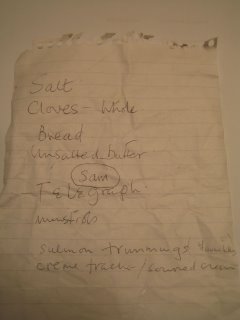 Salt
Cloves - Whole
Bread
Unsalted butter
Sam
Telegraph.
salmon trimmings
creme frache / soured cream